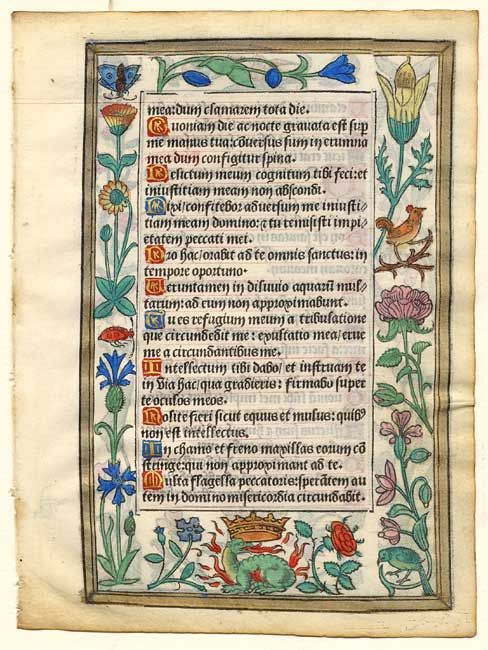 mea: dum clamarem tota die.
Quoniam die ac nocte gravata est sup
me manus tua: cōversus sum in erumna
mea dum configitur spina.
Delictum meum cognitum tibi feci: et
iniustitiam meam non abscondi.
Dixi/confitebor adversum me iniusti/
tiam meam domino: & tu remisisti impi/
etatem peccati mei.
Pro hac/orabit ad te omnis sanctus: in
tempore oportuno.
Veruntamen in diluvio aquarū mul/
tarum: ad eum non approximabunt.
Tu es refugium meum a tribulatione
que circundedit me: exultatio mea/erue
me a circundantibus me.
Intellectum tibi dabo/ et instruam te
in via hac/qua gradieris: firmabo super
te oculos meos.
Nolite fieri sicut equus et mulus: quibꝰ
non est intellectus.
In chamo et freno maxillas eorum cō
stringe: qui non approximant ad te.
Multa flagella peccatoris: sperātem au
tem in domino misericordia circundabit.